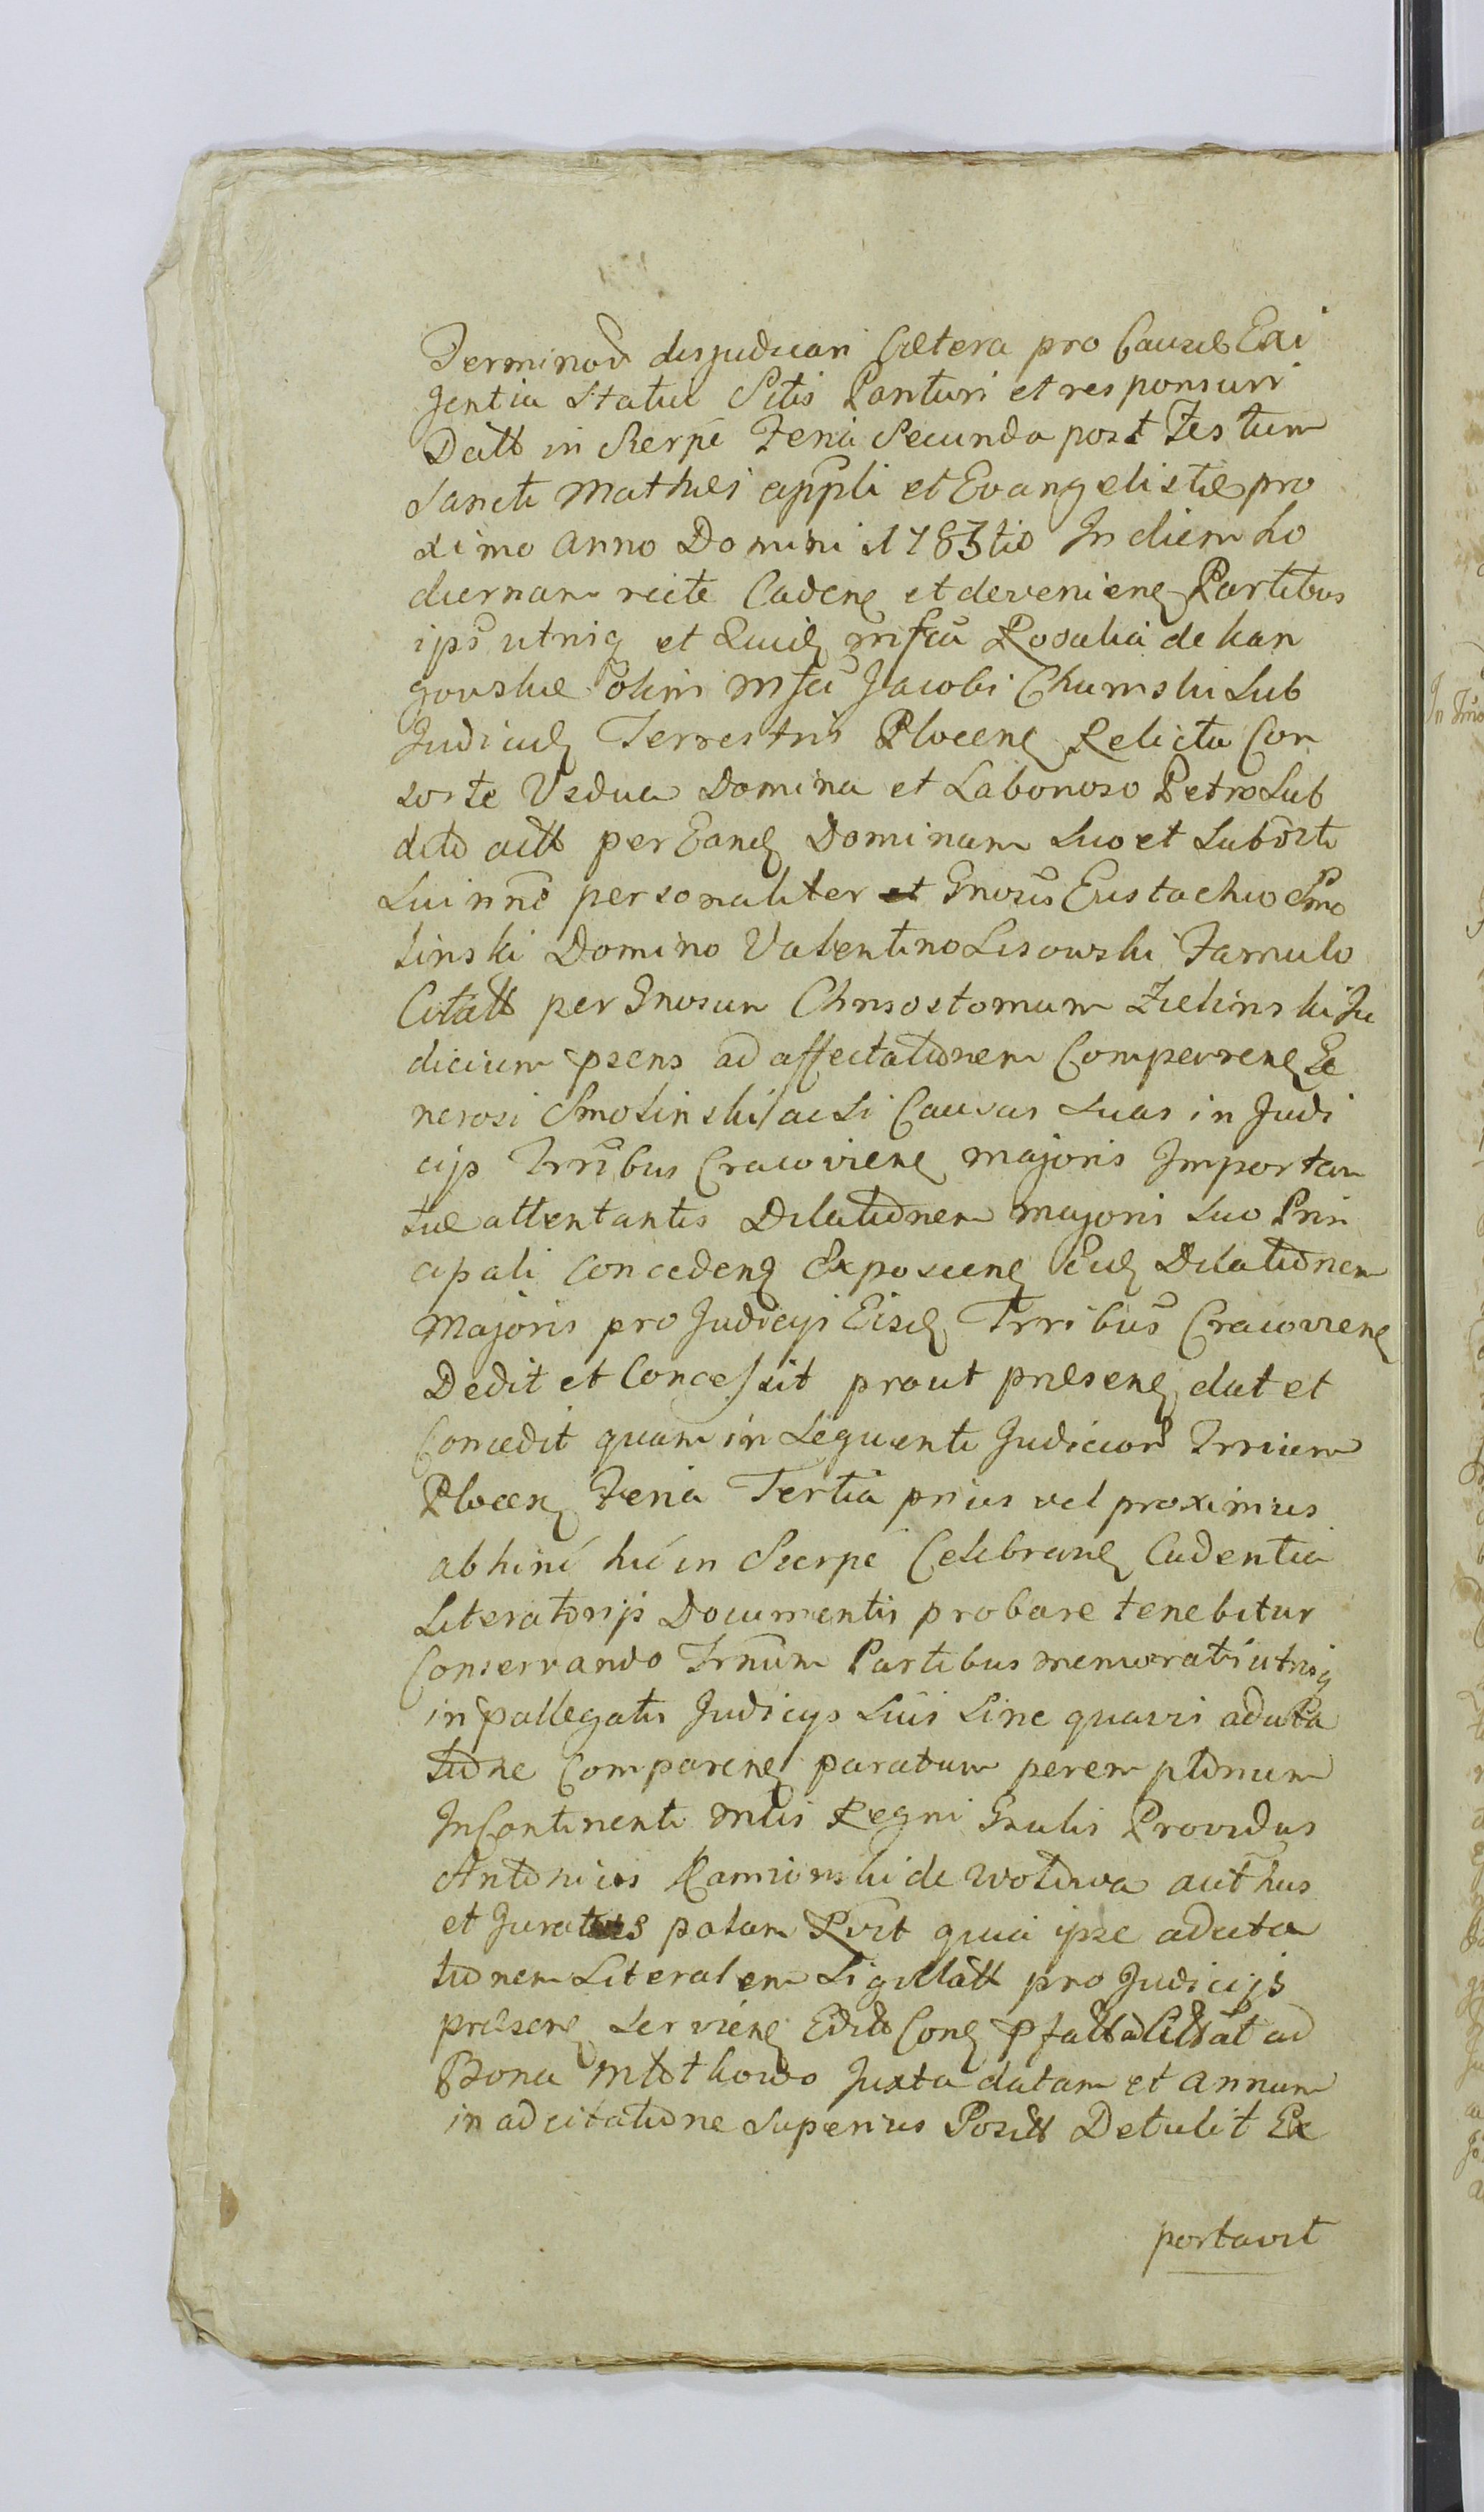 Terminoꝝ disjudicari Cætera pro Causæ Exi
gentia Statui Sitis Parituri et responsuri
Datt in Sierpc Feria Secunda post Festum
Sancti Mathæi appli et Evangelistæ pro
ximo anno Domini 1783tio In diem ho
diernam recte Caden et devenien Partibus
ips utrisq et Quid mfca Rosalia de Kan
gowskie olim Mfci Jacobi Chumski Sub
Judicis Terrestris Plocen Relicta Con
sorte Vidua Domina et Laborioso Petro Sub
dito actt per Eand Dominam Suo et Subditi
Sui nne personaliter et Gnosus Eustachio Smo
linski Domino Valentino Lisowski Famulo
Citatt per Gnosum Chrisostomum Zielinski Ju
dicium psens ad affectationem Comperren Ge
nerosi Smolinski ac si Causas Suas in Judi
cijs Trribus Cracovien majoris Importan
tiæ attentantis Dilationem majoris Suo Prin
cipali concedend Exposcen Eid Dilationem
Majoris pro Judicijs Eisd Trribus Cracovien
Dedit et Concessit prout præsen dat et
Concedit quam in Sequenti Judiciorꝝ Trrium
Plocen Feria Tertia prius vel proximius
abhinc hic in Sierpc Celebran Cadentia
Literatorijs Documentis probare tenebitur
Conservando Trnum Partibus memorati utrisq
in pallegatis Judicijs Suis Sine quavis adcita
tione Comparend paratum peremptorium
InContinenti Mtis Regni Gnalis Providus
Antonius Kaminski de Wolowa authus
et Juratus palam Rvit quia ipse adcita
tionem Literalem Sigillatt pro Judicijs
præsen Servien Editt Con pfattalittat ad
Bona Mlotkowo Juxta datam et annum
in adcitatione Superius Positt Detulit Ex
portavit